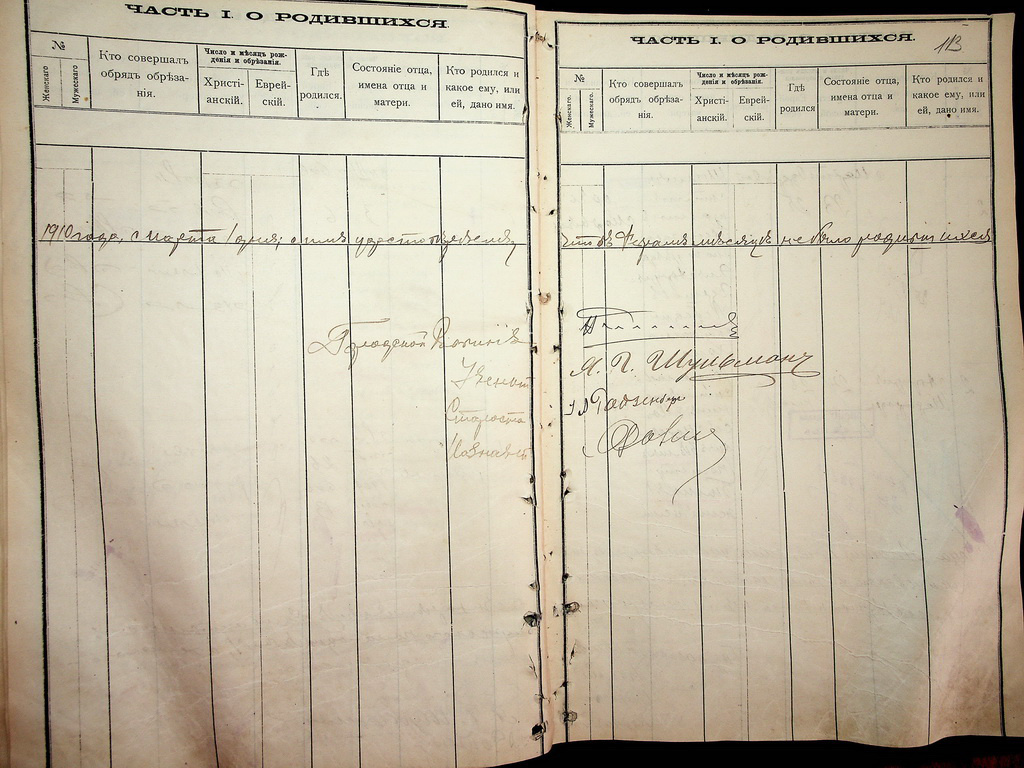 ЧАСТЬ I. О РОДИВШИХСЯ.
№
Женскаго
Мужескаго
Кто совершалъ
обрядъ обрѣза-
нія.
Число и мѣсяцъ рож-
денія и обрѣзанія.
Христі-
анскій.
Еврей-
скій.
Гдѣ
родился.
Состояніе отца,
имена отца и
матери.
Кто родился и
какое ему, или
ей, дано имя.
1910 года, Марта 1 дня,
Городской Раввинъ
Ученый
Староста
Казначей
ЧАСТЬ I. О РОДИВШИХСЯ.
113
№
Женскаго.
Мужескаго.
Кто совершалъ
обрядъ обрѣза-
нія.
Число и мѣсяцъ рож-
денія и обрѣзанія.
Христі-
анскій.
Еврей-
скій.
Гдѣ
родился
Состояніе отца,
имена отца и
матери.
Кто родился и
какое ему, или
ей, дано имя.
что въ мѣсяцѣ не было родившихся
Шульманъ